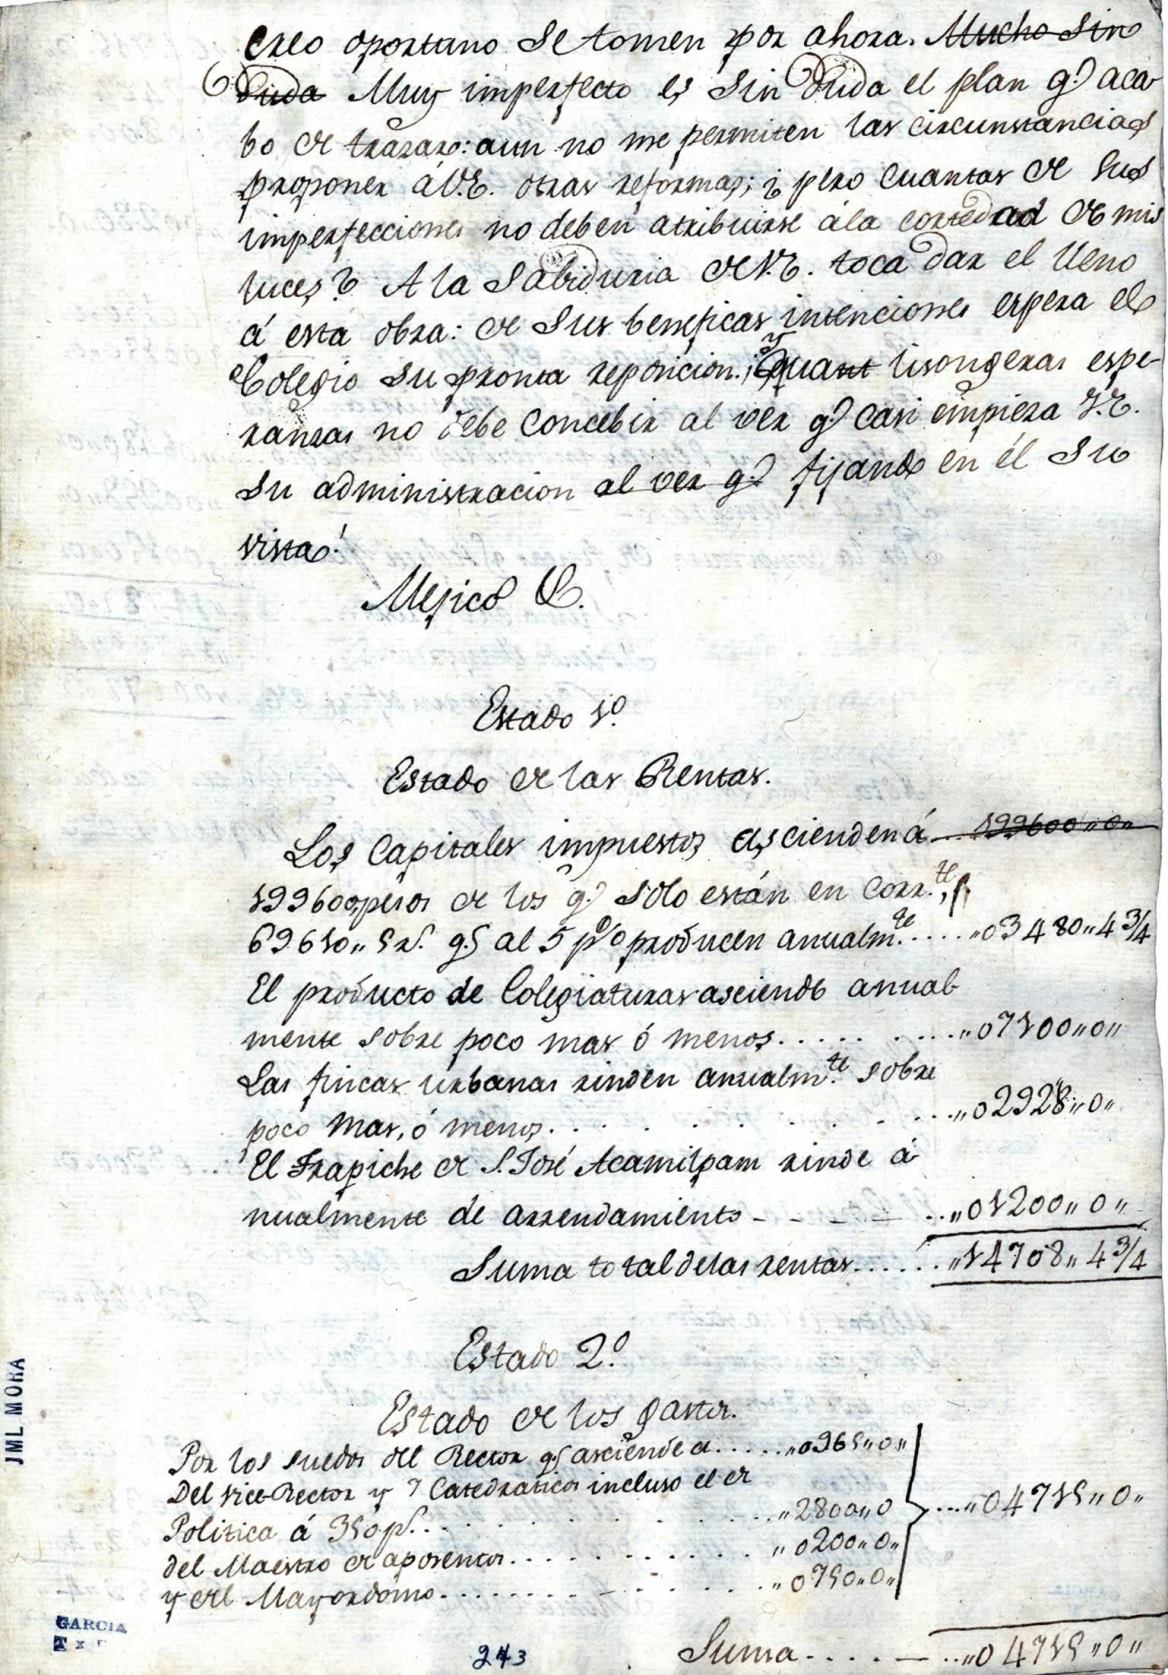 creo oportuno se tomen por ahora. Mucho sin
duda Muy imperfecto es sin duda el plan q.e aca-
bo de trazar: aun no me permiten las circunstancias
proponer á V.E. otras reformas; ¿pero cuantas de sus
imperfecciones no deben atribuirse á la cortedad de mis
luces? A la sabiduria de V.E. toca dar el lleno
á esta obra: de sus beneficas intenciones espera el
Colegio su pronta reposicion. ¡y quant lisongeras espe-
ranzas no debe concebir al ver q.e casi empieza V.E.
su administracion al ver q.e fijando en él su
vista!
Mejico &.
Estado 1.º
Estado de las Rentas.
Los Capitales impuestos ascienden á 199600,,0,,
199600,,pesos de los q.e solo están en corr.te,
69610,, 5 r.s q.s al 5 p%o producen anualm.te .... ,,03480,,4 3/4
El producto de Colegiaturas asciende anual-
mente sobre poco mas ó menos. .... ,,07100,,0,,
Las fincas urbanas rinden anualm.te sobre
poco mas, ó menos. .... ,,02928,,0,,
El Trapiche de S. José Acamilpam rinde á-
nualmente de arrendamiento - - - ..,,01200,,0,,
Suma total de las rentas...... ,,14708,, 4 3/4
Estado 2.º
Estado de los gastos.
Por los sueldos del Rector q.s asciende a..... ,,0965,,0,,
Del Vice-Rector y 7 Catedraticos incluso el de
Politica á 350 p.s ... ,,2800,,0 ....,,04715,,0,,
del Maestro de aposentos. .... ,,0200,,0,,
y del Mayordomo. .... ,,0750,,0,,
Suma. .... ,,04715,,0,,
243
JML MORA
GARCIA